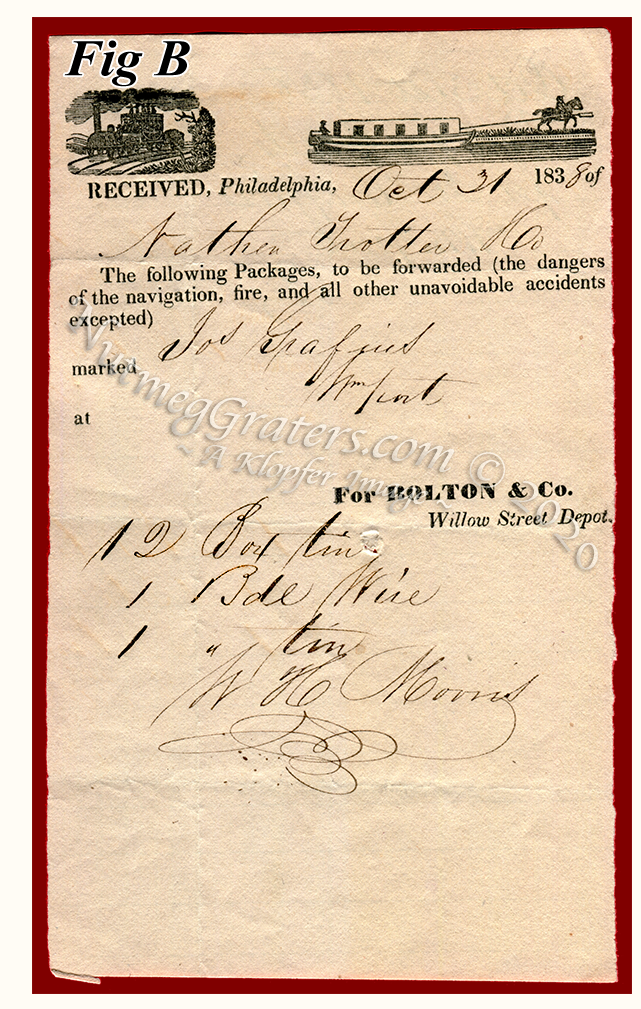 Fig B
RECEIVED, Philadelphia, Oct 31 1838 of
Nathen Trotter & Co
The following Packages, to be forwarded (the dangers
of the navigation, fire, and all other unavoidable accidents
excepted)
Jos Grafius
marked
Wmport
at
NutmegGraters.com © 2020
~ A Klopfer Image ~
For BOLTON & Co.
Willow Street Depot.
12 Box tin
1 Bdl Wire
1 " tin
W H Morris